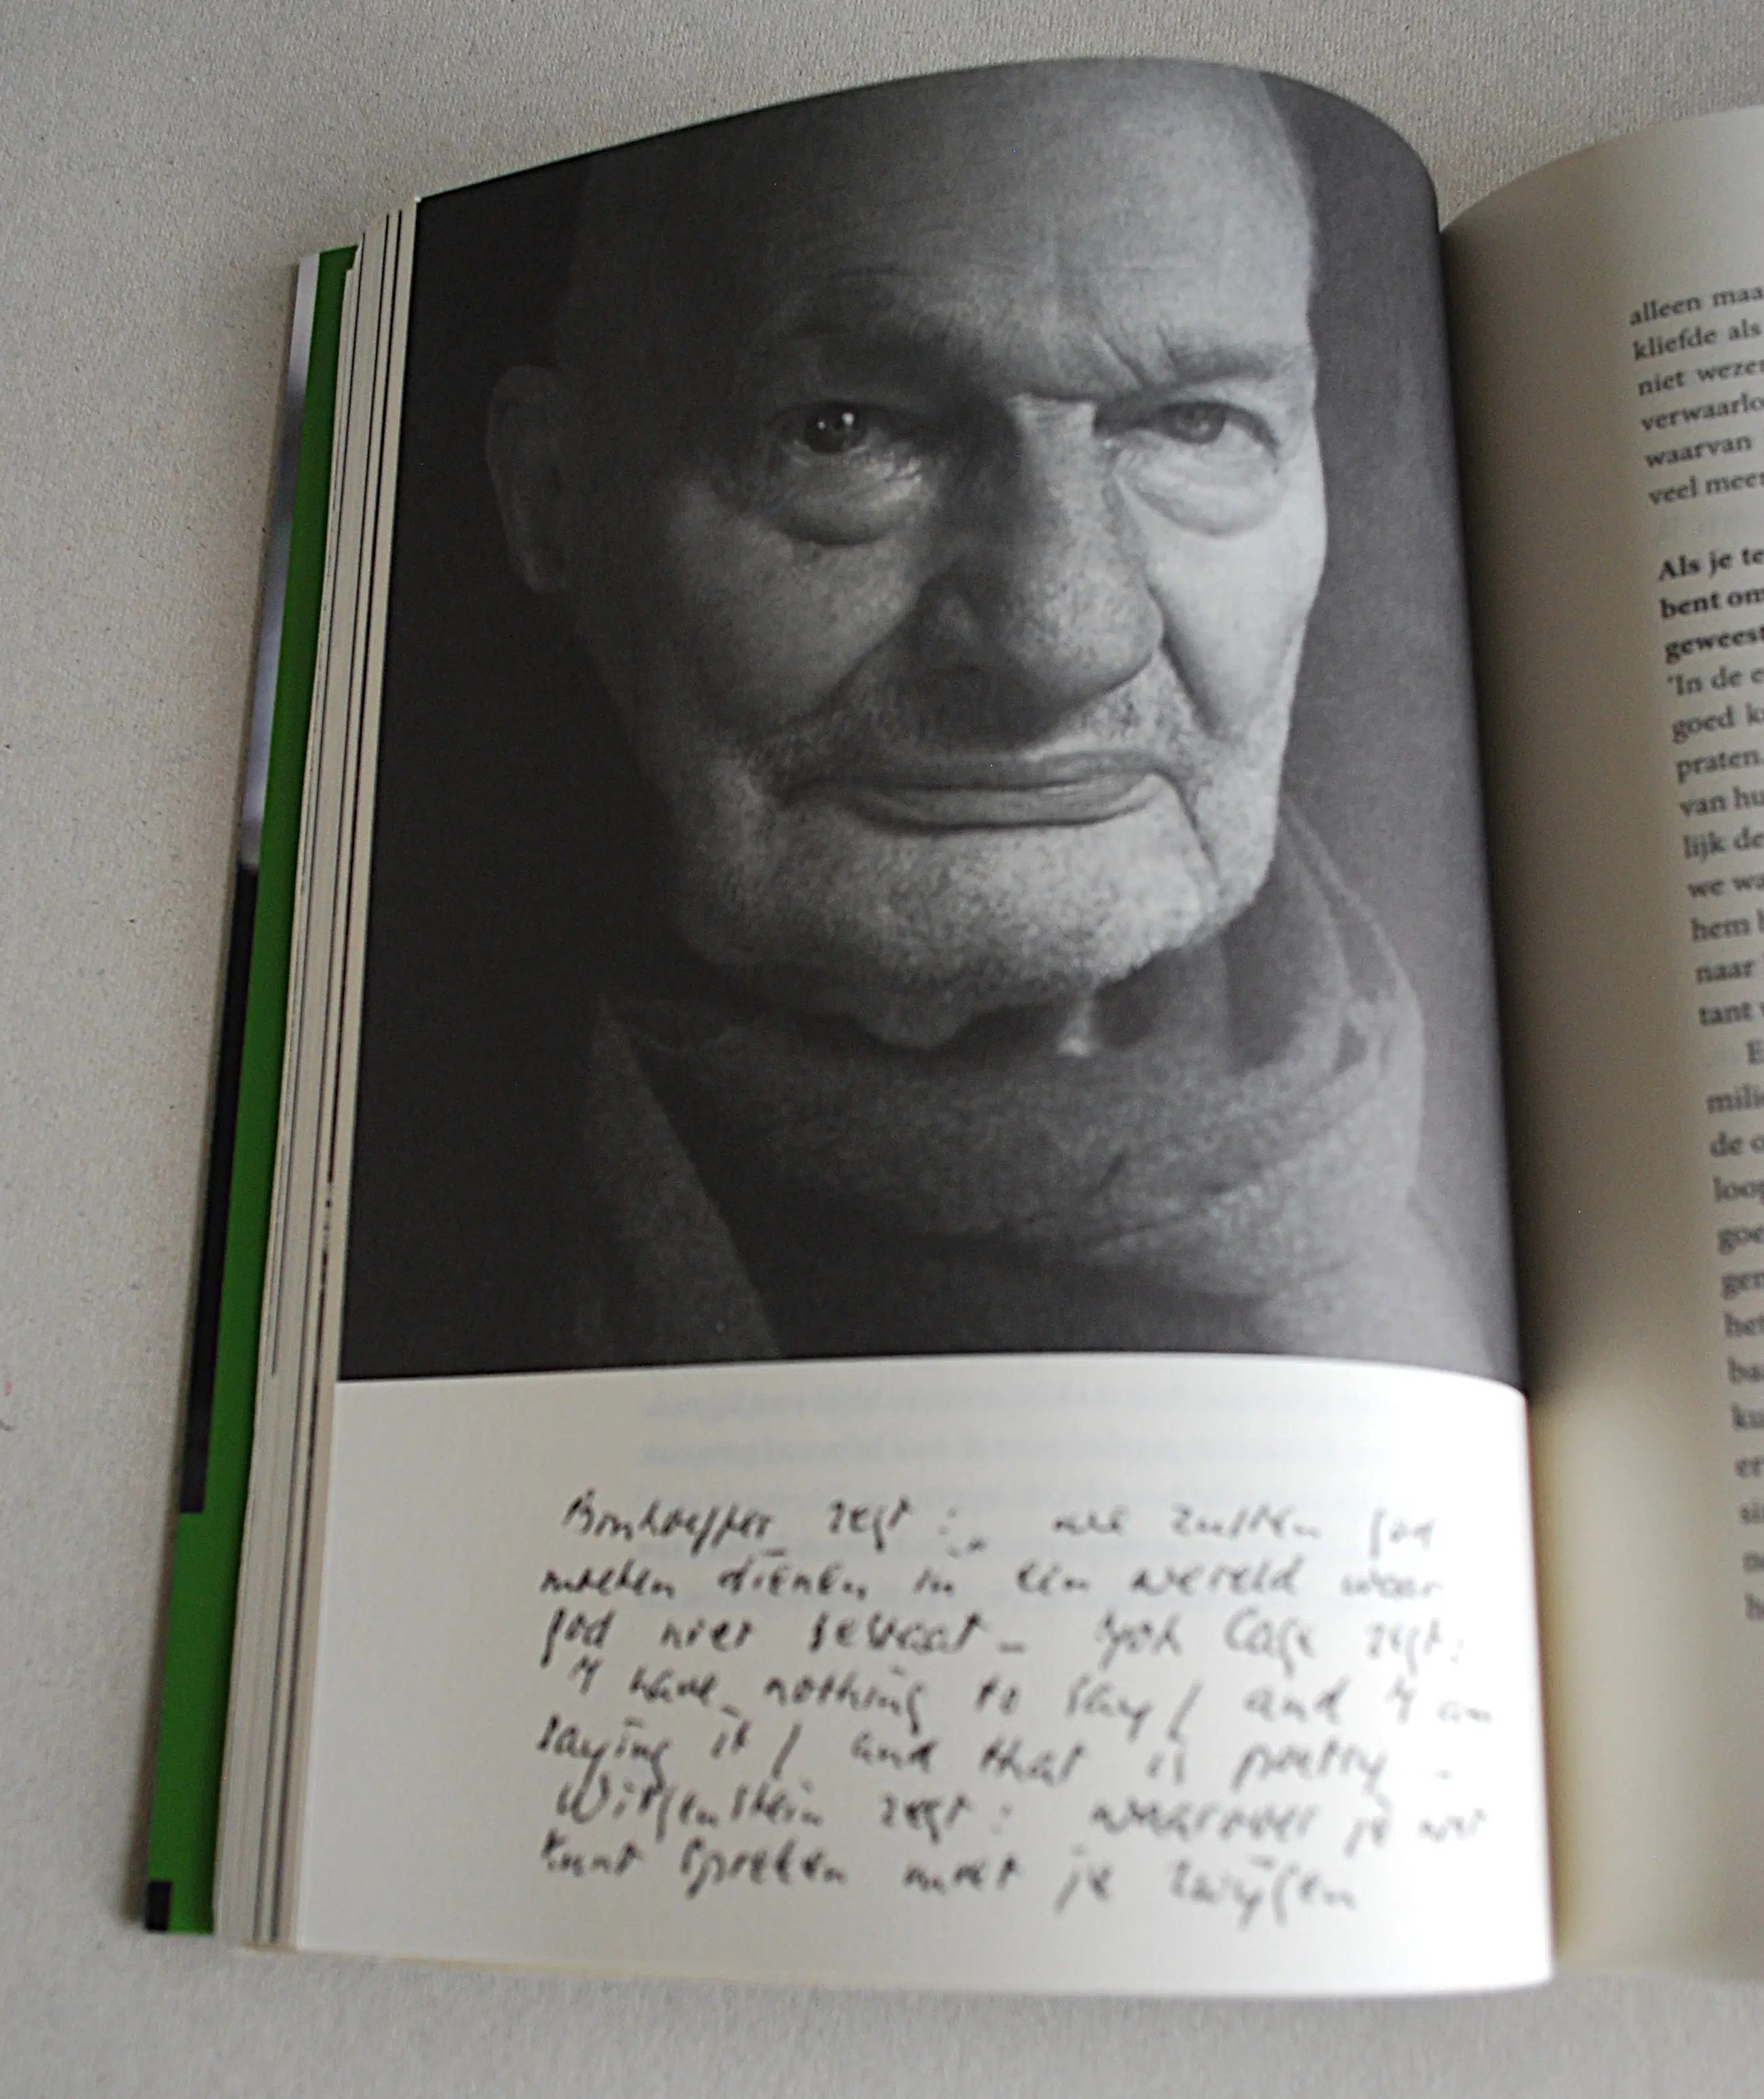 Bonhoeffer zegt: we zullen god
moeten dienen in een wereld waar
god niet bestaat – John Cage zegt:
I have nothing to say / and I am
saying it / and that is poetry –
Wittgenstein zegt: waarover je niet
kunt spreken moet je zwijgen
alleen maa
kliefde als
niet wezen
verwaarlo
waarvan
veel meer
Als je te
bent om
geweest
'In de e
goed k
praten.
van hu
lijk de
we wa
hem
naar
tant
E
mili
de o
loop
goe
gen
het
ba
ku
er